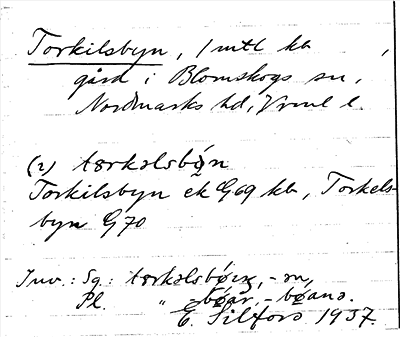 Torkilsbyn, 1 mtl kb,
gård i Blomskogs sn,
Nordmarks hd, Vrml l.
(2) tærkəlsbýn
Torkilsbyn ek G69 kb, Torkels-
byn G70
Inv.: Sg.: tærkəlsbøɪŋ, -ɳ,
Pl. " -bøar, -bøanə.
E. Silfors 1937.